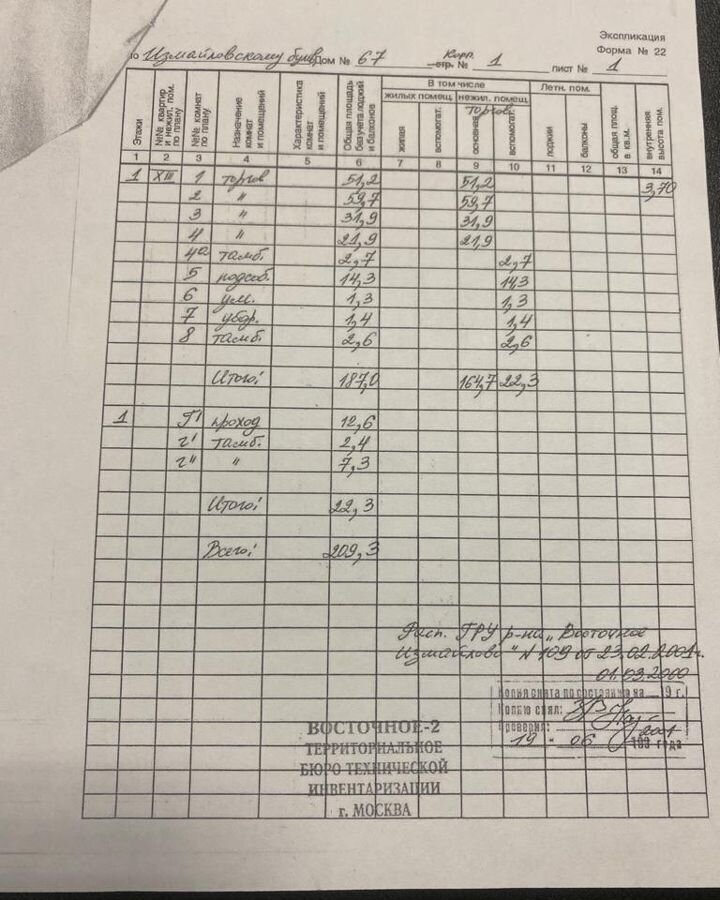 Экспликация
по Измайловскому бульв. Дом № 67 Корп. стр. № 1
Форма № 22
лист № 1
Этажи
№№ квартир и нежил. пом. по плану
№№ комнат по плану
Назначение комнат и помещений
Характеристика комнат и помещений
Общая площадь без учёта лоджий и балконов
В том числе
жилых помещ. нежил. помещ.
торгов
жилая
вспомогат.
основная
вспомогат.
Летн. пом.
лоджии
балконы
общая площ. в кв.м.
внутренняя высота пом.
1 2 3 4 5 6 7 8 9 10 11 12 13 14
1 XIII 1 торгов 51,2 51,2 3,70
2 " 59,7 59,7
3 " 31,9 31,9
4 " 21,9 21,9
4а тамб. 2,7 2,7
5 подсоб. 14,3 14,3
6 ум. 1,3 1,3
7 убор. 1,4 1,4
8 тамб. 2,6 2,6
Итого: 187,0 164,7 22,3
1 Г1 проход 12,6
г' тамб. 2,4
г" " 7,3
Итого: 22,3
Всего: 209,3
Расп. ГРУ р-на „Восточное
Измайлово" N 109 от 23.02.2001г.
01.03.2000
Копия снята по состоянию на 19 г.
Копию снял:
Проверил:
19 - 06 2001 199 года
ВОСТОЧНОЕ-2
ТЕРРИТОРИАЛЬНОЕ
БЮРО ТЕХНИЧЕСКОЙ
ИНВЕНТАРИЗАЦИИ
г. МОСКВА